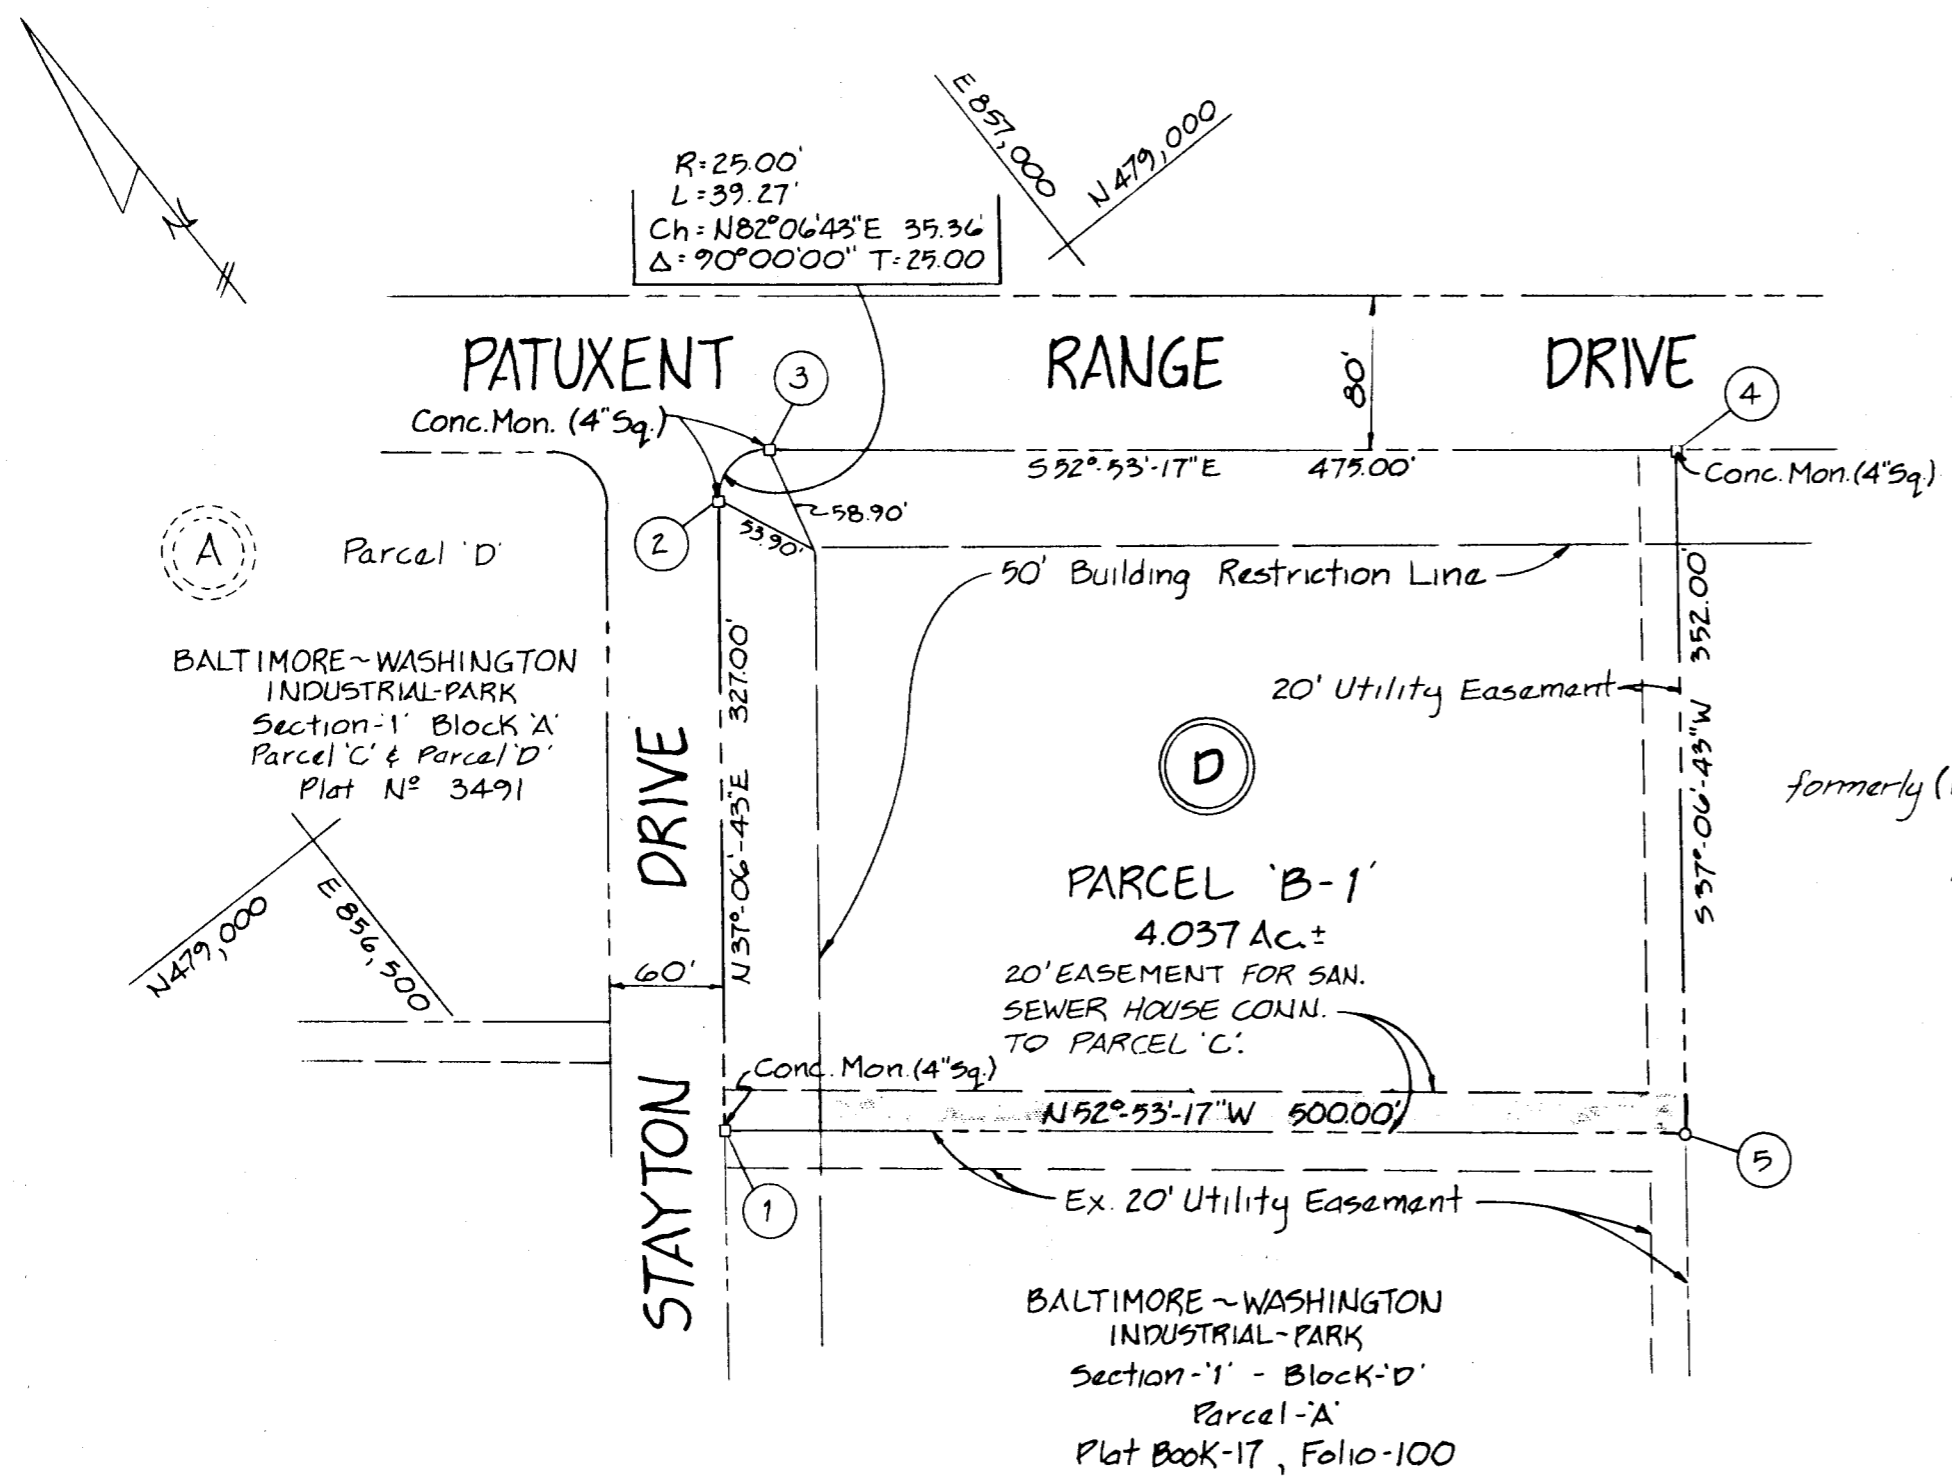 E 857,000
N 479,000
R=25.00'
L=39.27'
Ch=N82°06'43"E 35.36'
Δ=90°00'00" T=25.00
N
PATUXENT RANGE DRIVE
80'
3
4
Conc.Mon. (4"Sq.)
S52°-53'-17"E 475.00'
Conc. Mon. (4"Sq.)
58.90'
53.90'
2
A
Parcel 'D'
50' Building Restriction Line
BALTIMORE~WASHINGTON
INDUSTRIAL-PARK
Section-'1' Block 'A'
Parcel 'C' & Parcel 'D'
Plat Nº 3491
N37°-06'-43"E 327.00'
20' Utility Easement
S37°-06'-43"W 352.00'
D
formerly
N479,000
E 856,500
PARCEL 'B-1'
4.037 Ac.±
20' EASEMENT FOR SAN.
SEWER HOUSE CONN.
TO PARCEL 'C'.
60'
STAYTON DRIVE
Conc. Mon. (4"Sq.)
N52°-53'-17"W 500.00'
5
1
Ex. 20' Utility Easement
BALTIMORE~WASHINGTON
INDUSTRIAL~PARK
Section-'1' - Block-'D'
Parcel-'A'
Plat Book-17, Folio-100